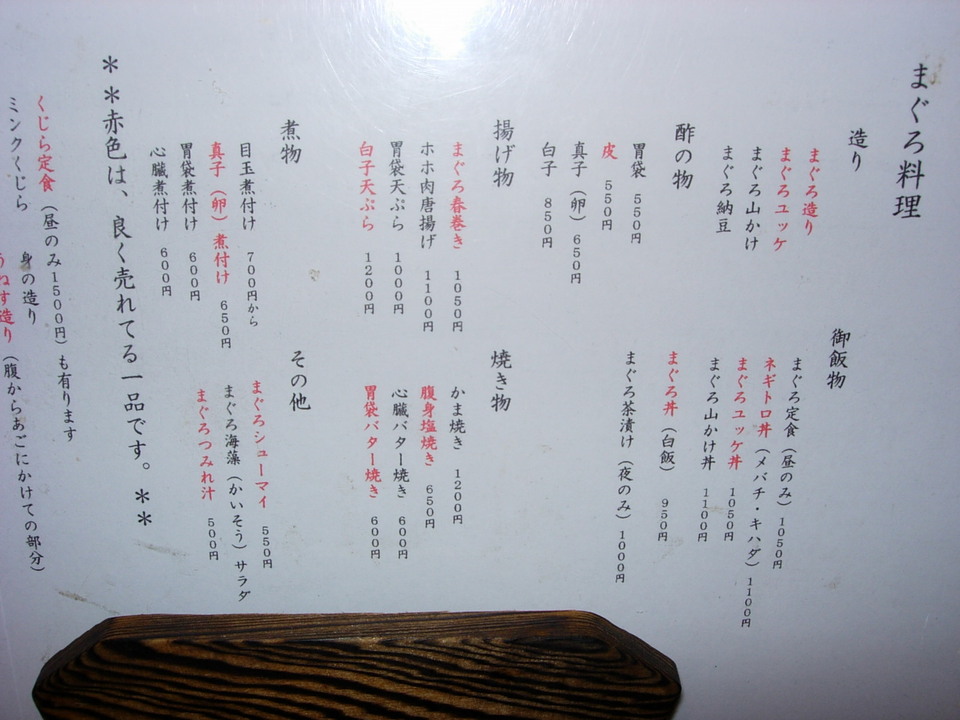 まぐろ料理
造り
まぐろ造り
まぐろユッケ
まぐろ山かけ
まぐろ納豆
酢の物
胃袋 550円
皮 550円
真子(卵) 650円
白子 850円
揚げ物
まぐろ春巻き 1050円
ホホ肉唐揚げ 1100円
胃袋天ぷら 1000円
白子天ぷら 1200円
煮物
目玉煮付け 700円から
真子(卵)煮付け 650円
胃袋煮付け 600円
心臓煮付け 600円
御飯物
まぐろ定食(昼のみ) 1050円
ネギトロ丼(メバチ・キハダ) 1100円
まぐろユッケ丼 1050円
まぐろ山かけ丼 1100円
まぐろ丼(白飯) 950円
まぐろ茶漬け(夜のみ) 1000円
焼き物
かま焼き 1200円
腹身塩焼き 650円
心臓バター焼き 600円
胃袋バター焼き 600円
その他
まぐろシューマイ 550円
まぐろ海藻(かいそう)サラダ
まぐろつみれ汁 500円
**赤色は、良く売れてる一品です。**
くじら定食(昼のみ1500円)も有ります
ミンクくじら 身の造り
うねす造り(腹からあごにかけての部分)